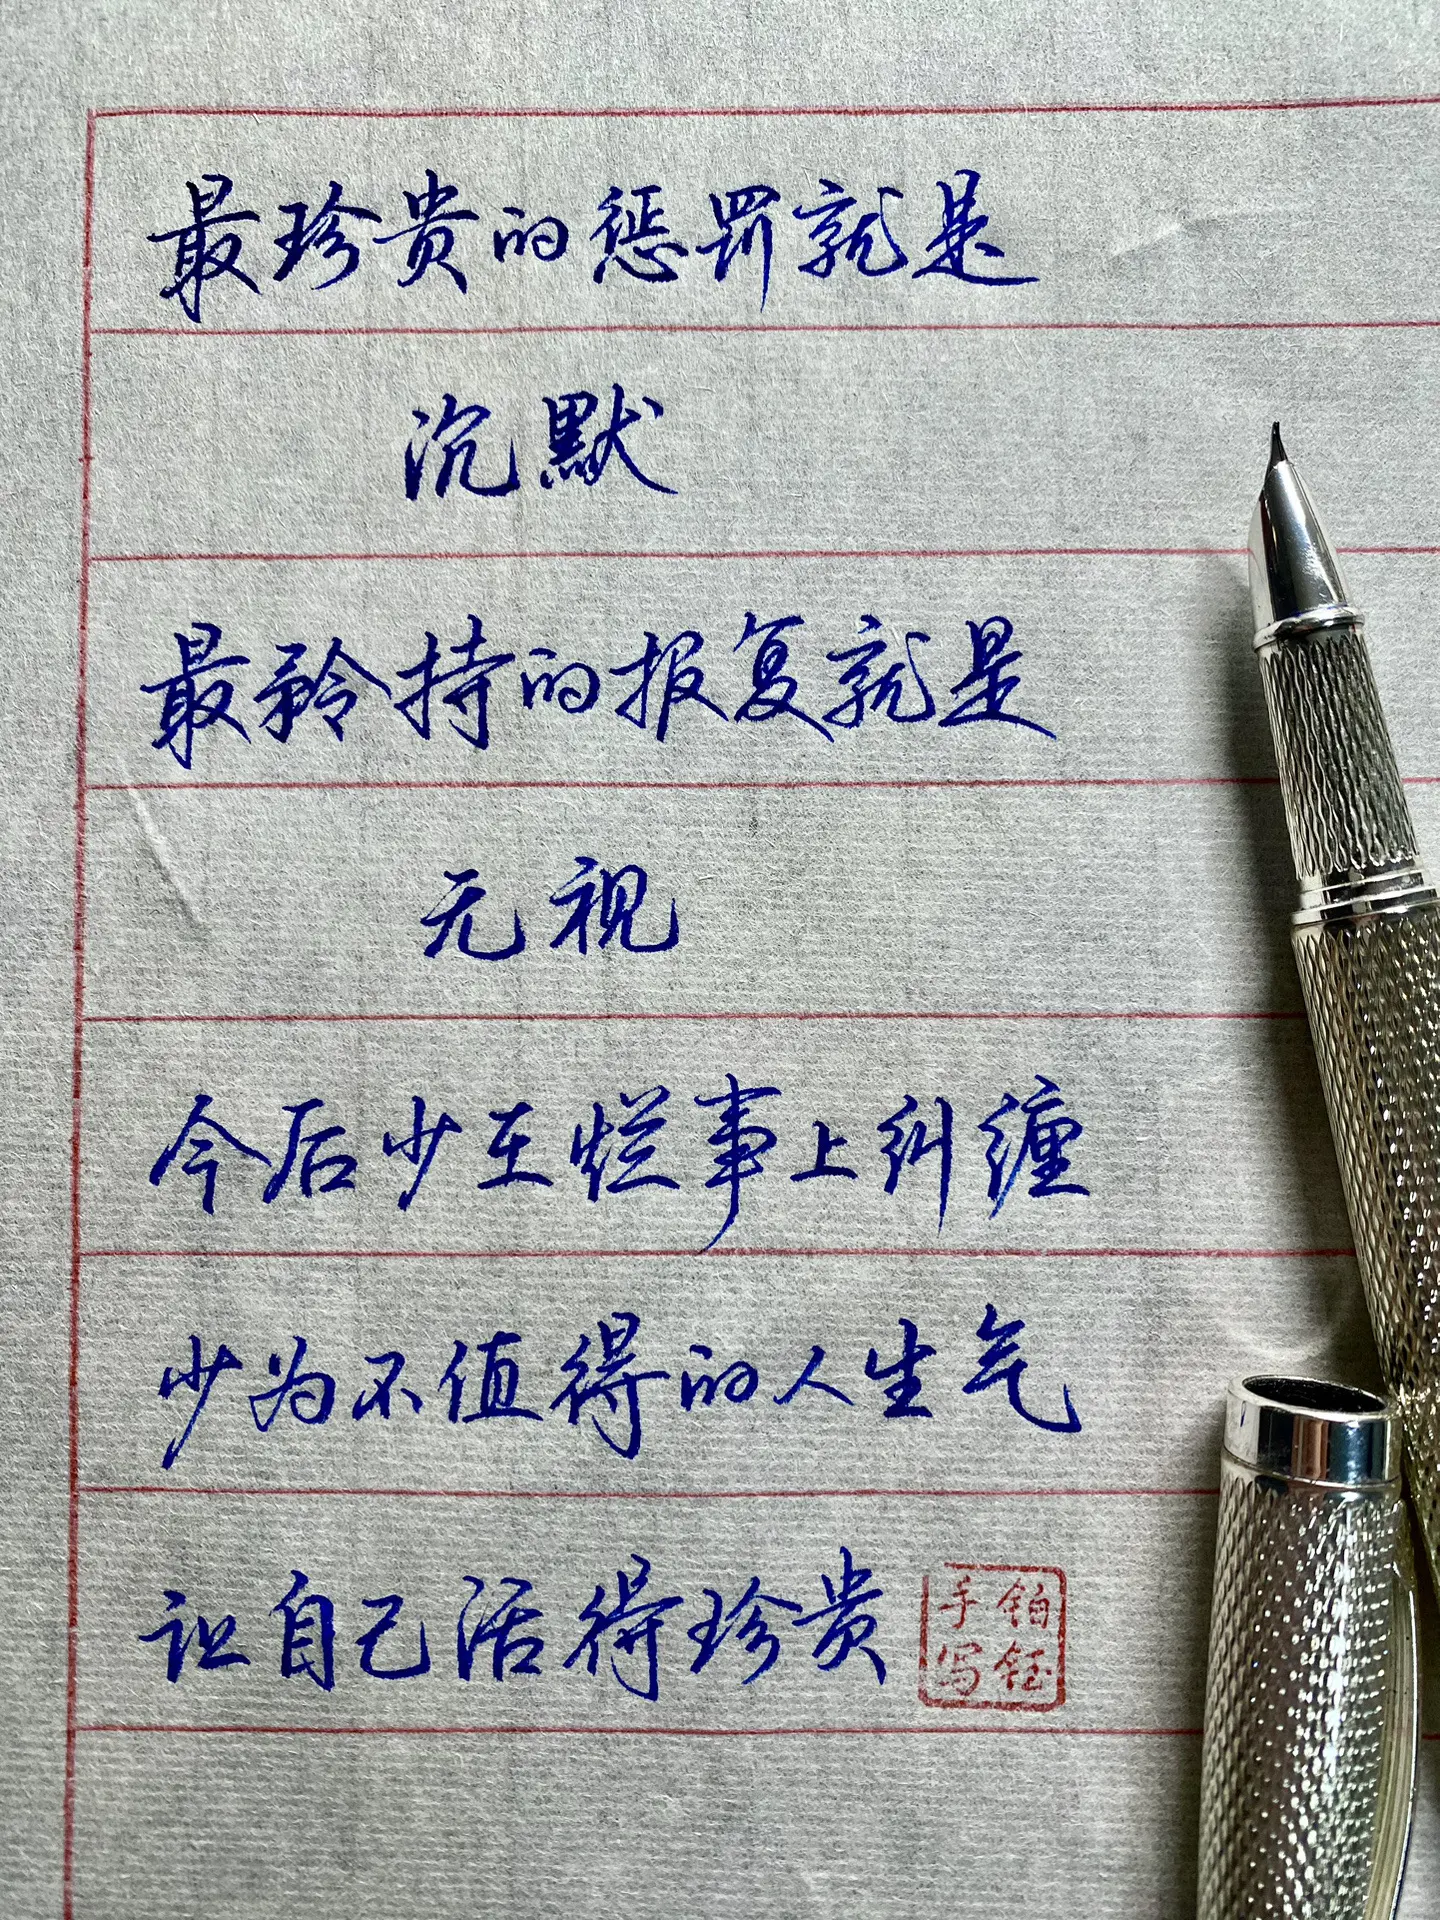 最珍贵的惩罚就是
沉默
最矜持的报复就是
无视
今后少在烂事上纠缠
少为不值得的人生气
让自己活得珍贵
铂钰
手写